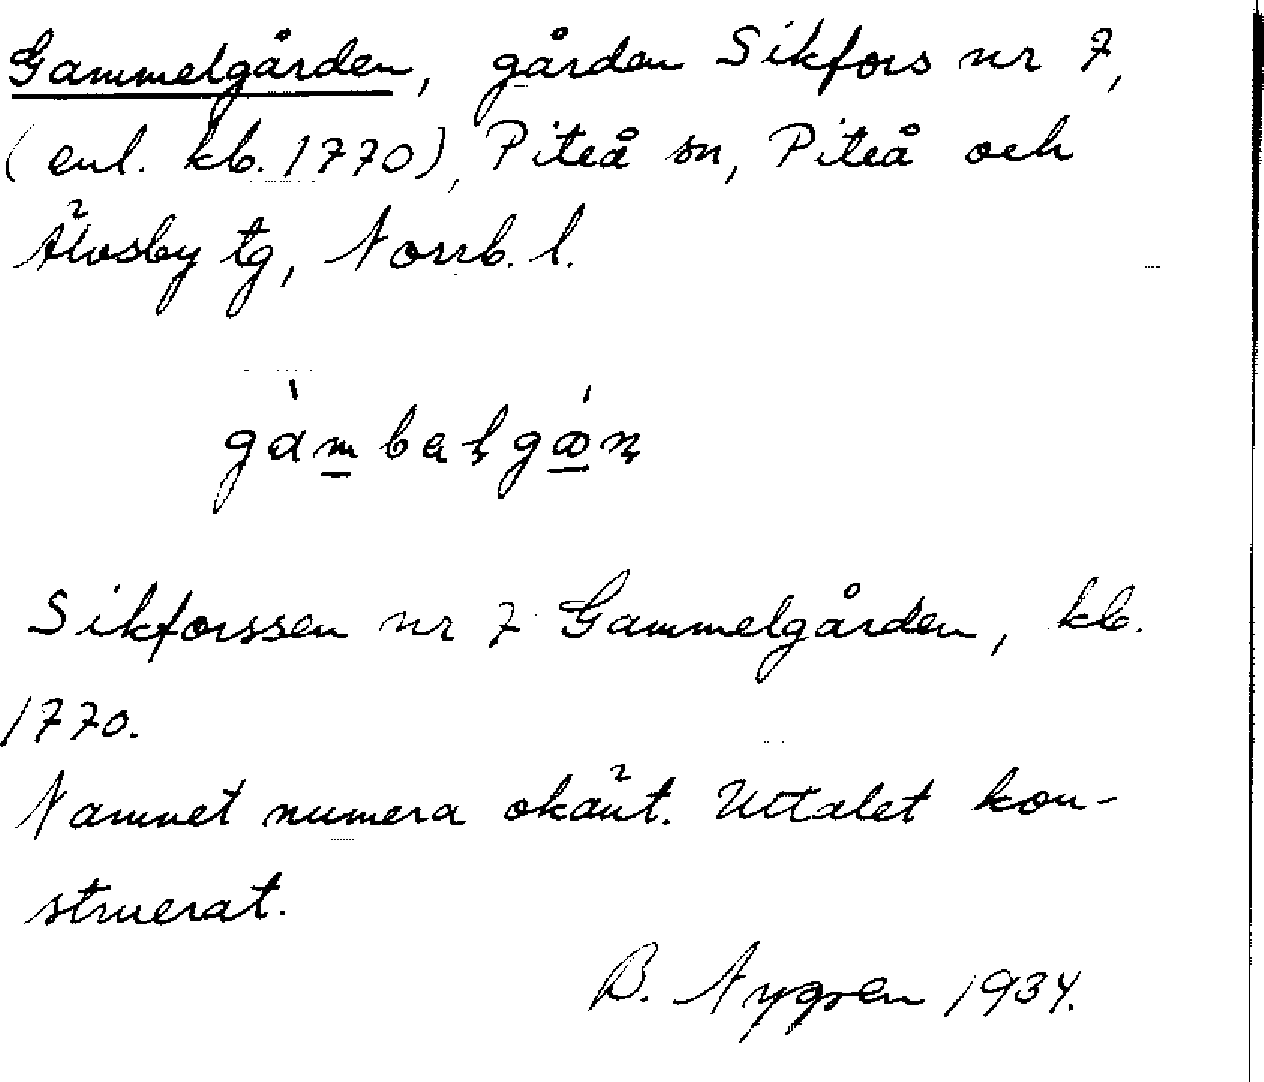 Gammelgården, gården Sikfors nr 7,
(enl. kb. 1770), Piteå sn, Piteå och
Älvsby tg, Norrb. l.
Sikforssen nr 7 Gammelgården, kb.
1770.
Namnet numera okänt. Uttalet kon-
struerat.
B. Nygren 1934.